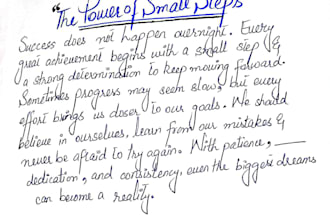 "The Power of Small Steps
Success does not happen overnight. Every
great achievement begins with a small step &
a strong determination to keep moving forward.
Sometimes progress may seem slow, but every
effort brings us closer to our goals. We should
believe in ourselves, learn from our mistakes &
never be afraid to try again. With patience, —
dedication, and consistency, even the biggest dreams
can become a reality.